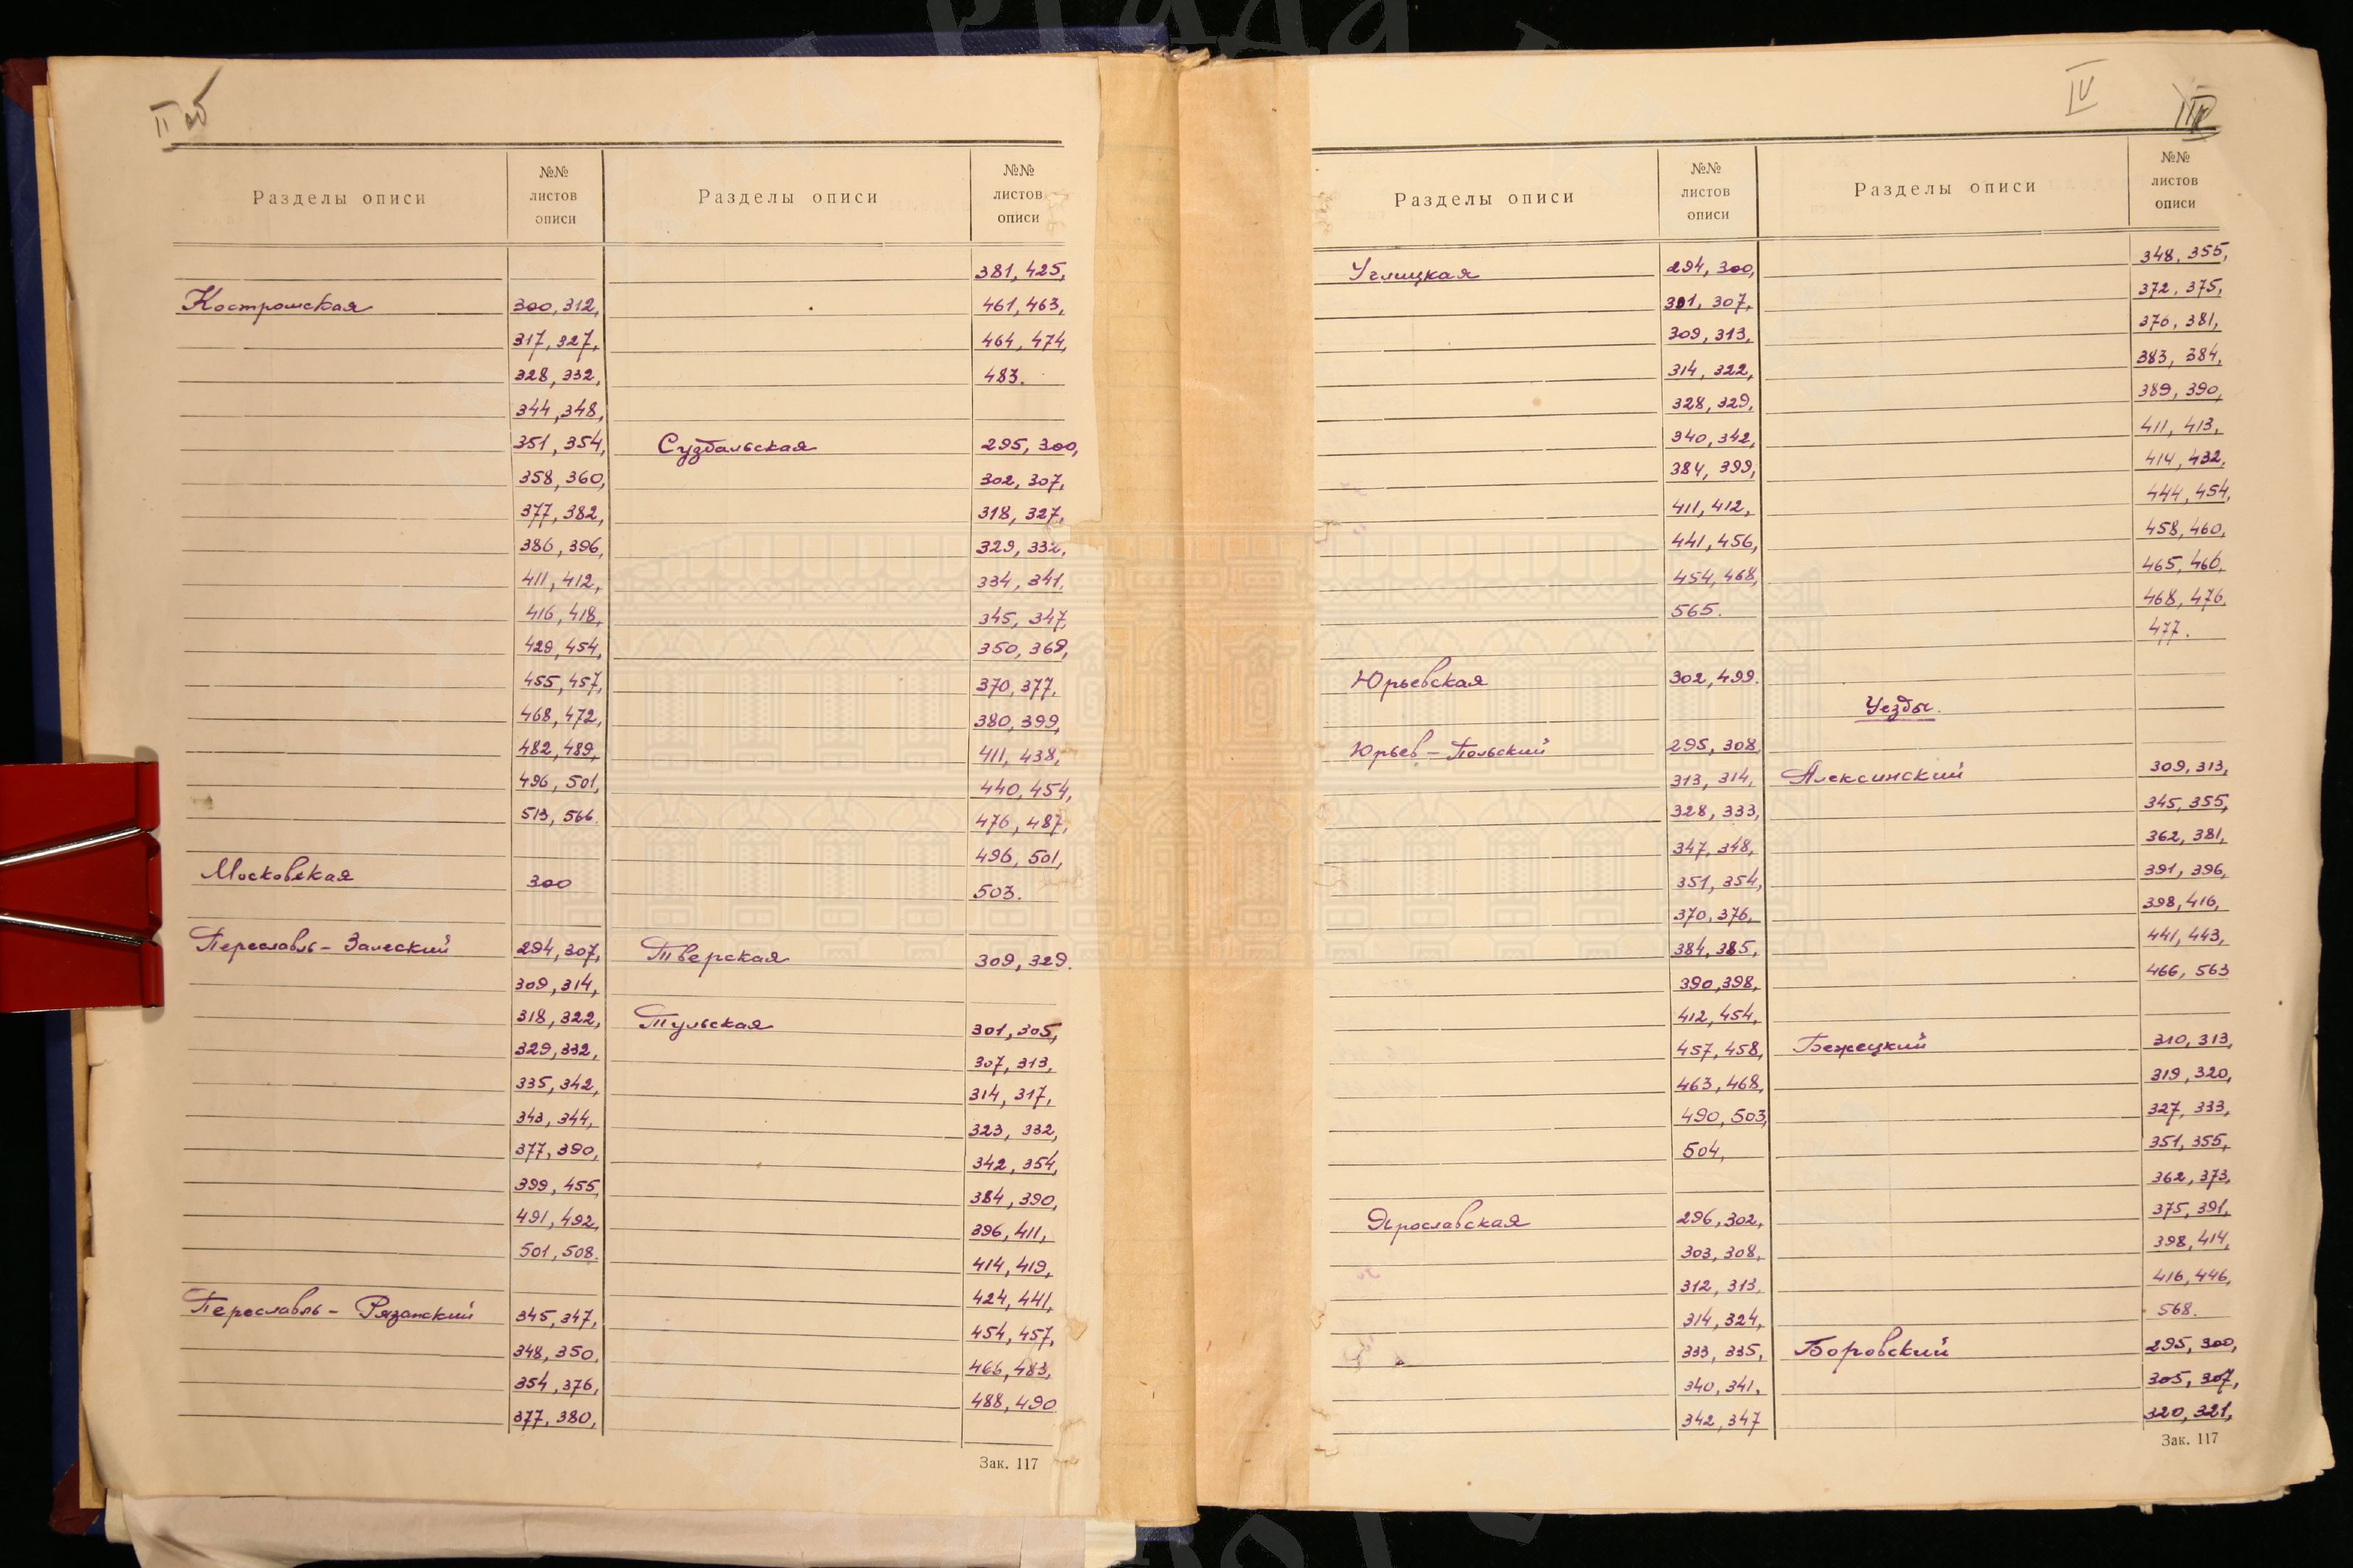 II об
Разделы описи
№№ листов описи
Костромская
300, 312,
317, 327,
328, 332,
344, 348,
351, 354,
358, 360,
377, 382,
386, 396,
411, 412,
416, 418,
429, 454,
455, 457,
468, 472,
482, 489,
496, 501,
513, 566.
Московская
300
Переславль-Залеский
294, 307,
309, 314,
318, 322,
329, 332,
335, 342,
343, 344,
377, 390,
399, 455,
491, 492,
501, 508.
Переславль - Рязанский
345, 347,
348, 350,
354, 376,
377, 380,
Разделы описи
№№ листов описи
381, 425,
461, 463,
464, 474,
483.
Суздальская
295, 300,
302, 307,
318, 327,
329, 332,
334, 341.
345, 347,
350, 369,
370, 377.
380, 399,
411, 438,
440, 454,
476, 487,
496, 501,
503.
Тверская
309, 329.
Тульская
301, 305,
307, 313,
314, 317,
323, 332,
342, 354,
384, 390,
396, 411,
414, 419,
424, 441,
454, 457,
466, 483,
488, 490.
Зак. 117
IV
Разделы описи
№№ листов описи
Углицкая
294, 300,
301, 307,
309, 313,
314, 322,
328, 329,
340, 342,
384, 399,
411, 412,
441, 456,
454, 468,
565.
Юрьевская
302, 499.
Юрьев - Польский
295, 308,
313, 314,
328, 333,
347, 348,
351, 354,
370, 376,
384, 385,
390, 398,
412, 454,
457, 458,
463, 468,
490, 503,
504,
Ярославская
296, 302,
303, 308,
312, 313,
314, 324,
333, 335,
340, 341,
342, 347
Разделы описи
№№ листов описи
348, 355,
372, 375,
376, 381,
383, 384,
389, 390,
411, 413,
414, 432,
444, 454,
458, 460,
465, 466,
468, 476,
477.
Уезды.
Алексинский
309, 313,
345, 355,
362, 381,
391, 396,
398, 416,
441, 443,
466, 563
Бежецкий
310, 313,
319, 320,
327, 333,
351, 355,
362, 373,
375, 391,
398, 414,
416, 446,
568.
Боровский
295, 300,
305, 307,
320, 321,
Зак. 117